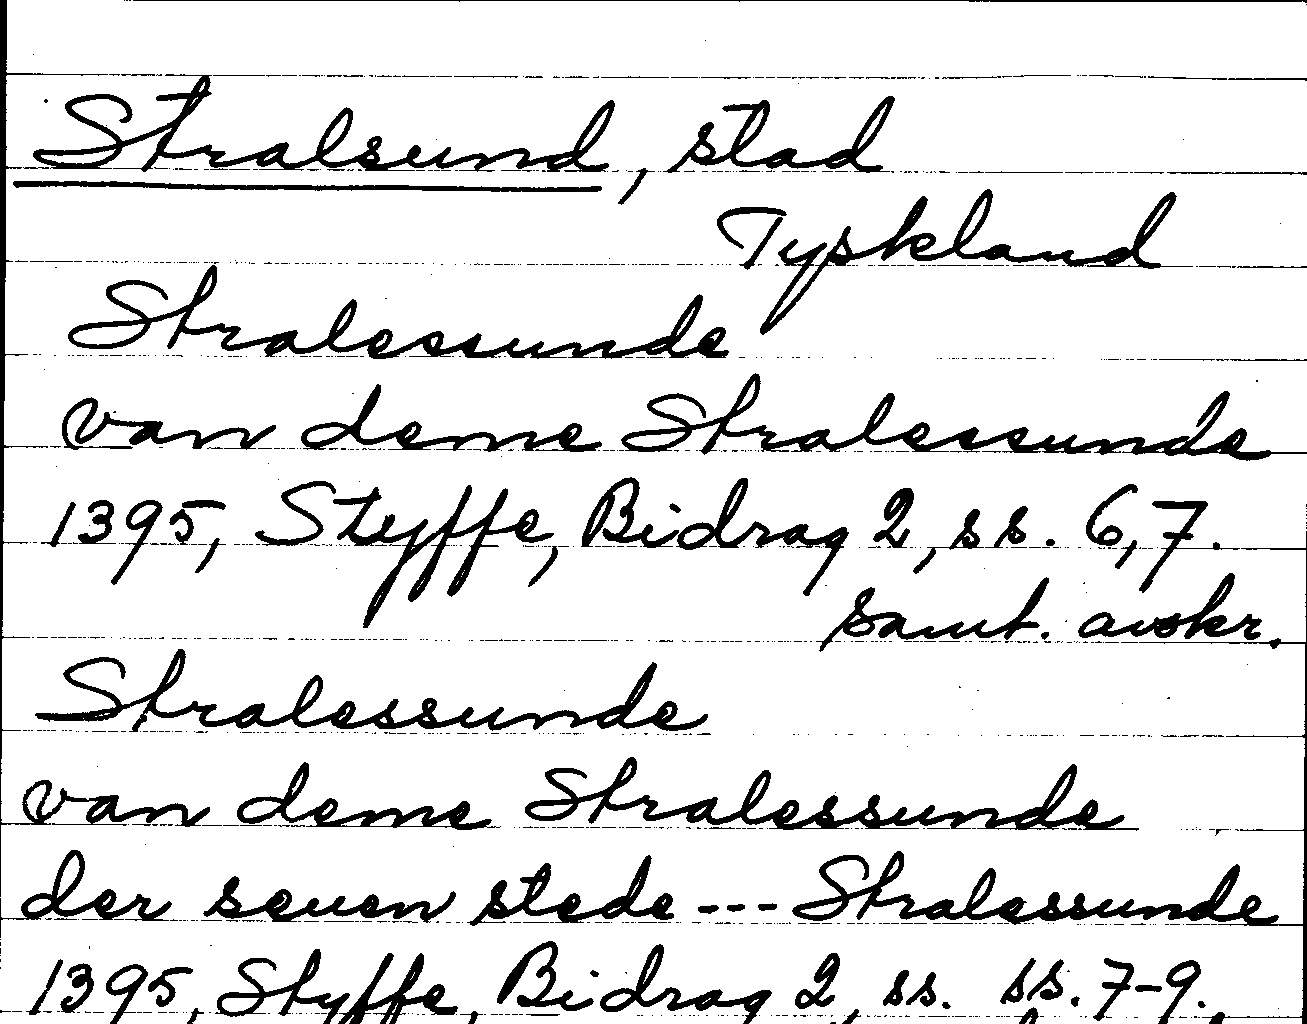 Stralsund, stad
Tyskland
Stralessunde
van deme Stralessunde
1395, Styffe, Bidrag 2, ss. 6,7.
samt. avskr.
Stralessunde
van deme Stralessunde
der seuen stede --- Stralessunde
1395, Styffe, Bidrag 2, ss. ss. 7-9.